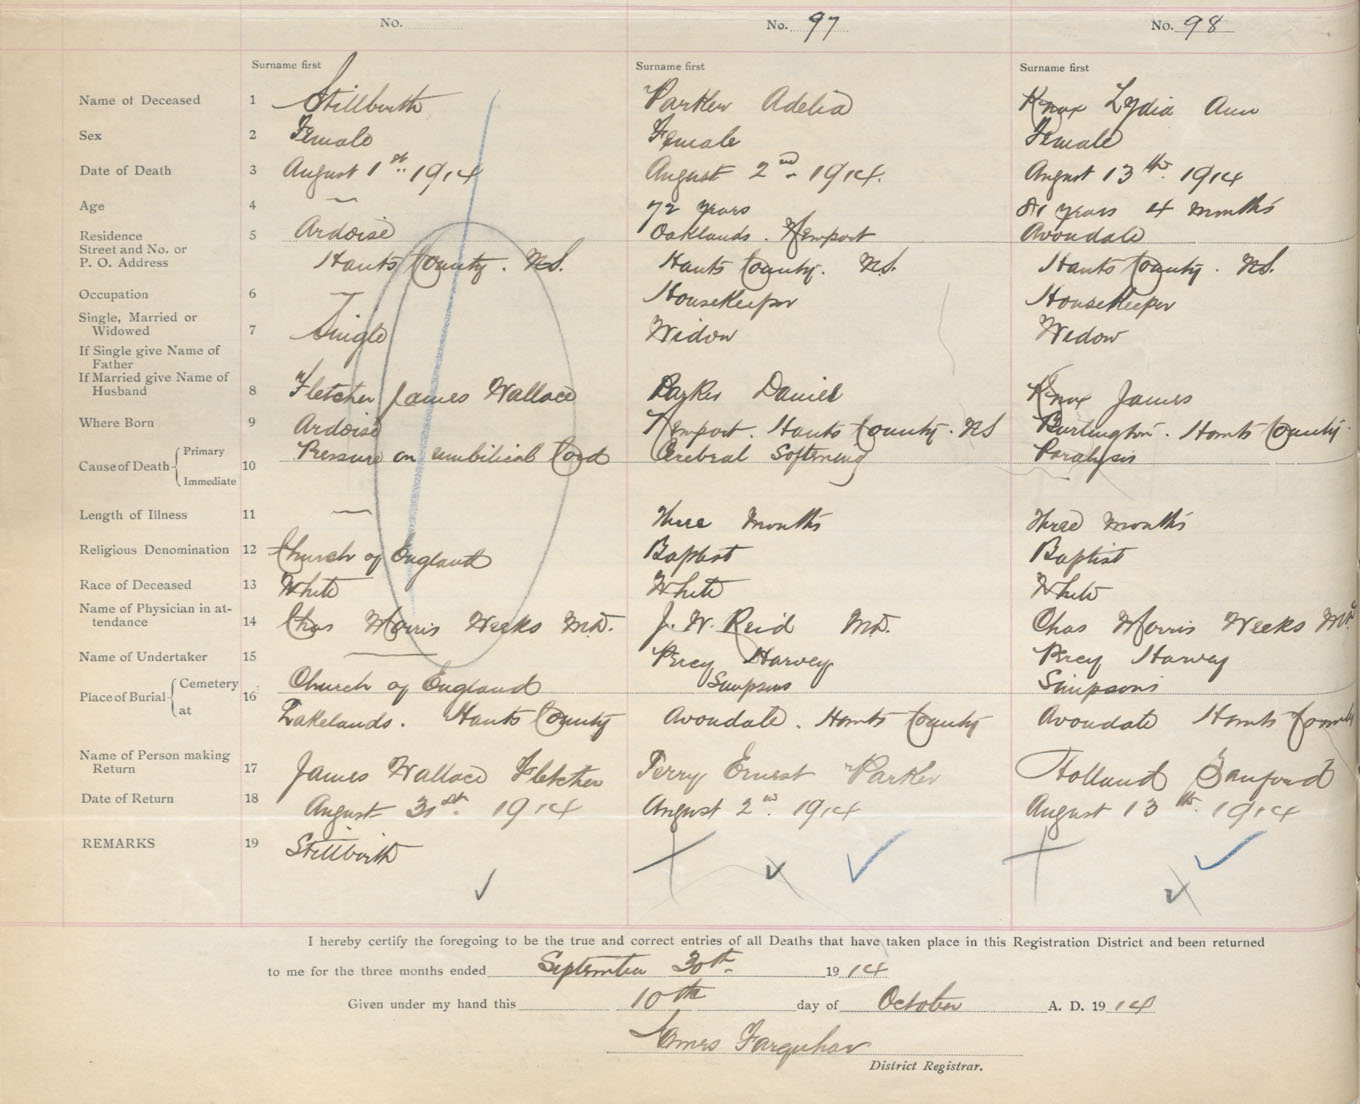 No.
No. 97
No. 98
Surname first
Surname first
Surname first
Name of Deceased 1 Stillbirth Parker Adelia Knox Lydia Ann
Sex 2 Female Female Female
Date of Death 3 August 1st. 1914 August 2nd 1914. August 13th. 1914
Age 4 — 72 years 81 years 4 months
Residence 5 Ardoise Oaklands. Newport Avondale
Street and No. or
P. O. Address Hants County. N.S. Hants County. N.S. Hants County. N.S.
Occupation 6 — Housekeeper Housekeeper
Single, Married or
Widowed 7 Single Widow Widow
If Single give Name of
Father
If Married give Name of
Husband 8 Fletcher James Wallace Parker Daniel Knox James
Where Born 9 Ardoise Newport. Hants County. N.S Burlington. Hants County.
Cause of Death { Primary 10 Pressure on umbilical Cord Cerebral Softening Paralysis
Immediate
Length of Illness 11 — Three Months Three Months
Religious Denomination 12 Church of England Baptist Baptist
Race of Deceased 13 White White White
Name of Physician in at-
tendance 14 Chas Morris Weeks M.D. J. W. Reid M.D. Chas Morris Weeks M.D.
Name of Undertaker 15 — Percy Harvey Percy Harvey
Place of Burial { Cemetery 16 Church of England Simpsons Simpsons
at Lakelands. Hants County Avondale. Hants County Avondale Hants County
Name of Person making
Return 17 James Wallace Fletcher Terry Ernest Parker Holland Sanford
Date of Return 18 August 31st. 1914 August 2nd. 1914 August 13th. 1914
REMARKS 19 Stillbirth
I hereby certify the foregoing to be the true and correct entries of all Deaths that have taken place in this Registration District and been returned
to me for the three months ended September 30th 1914
Given under my hand this 10th day of October A. D. 1914
James Farquhar
District Registrar.